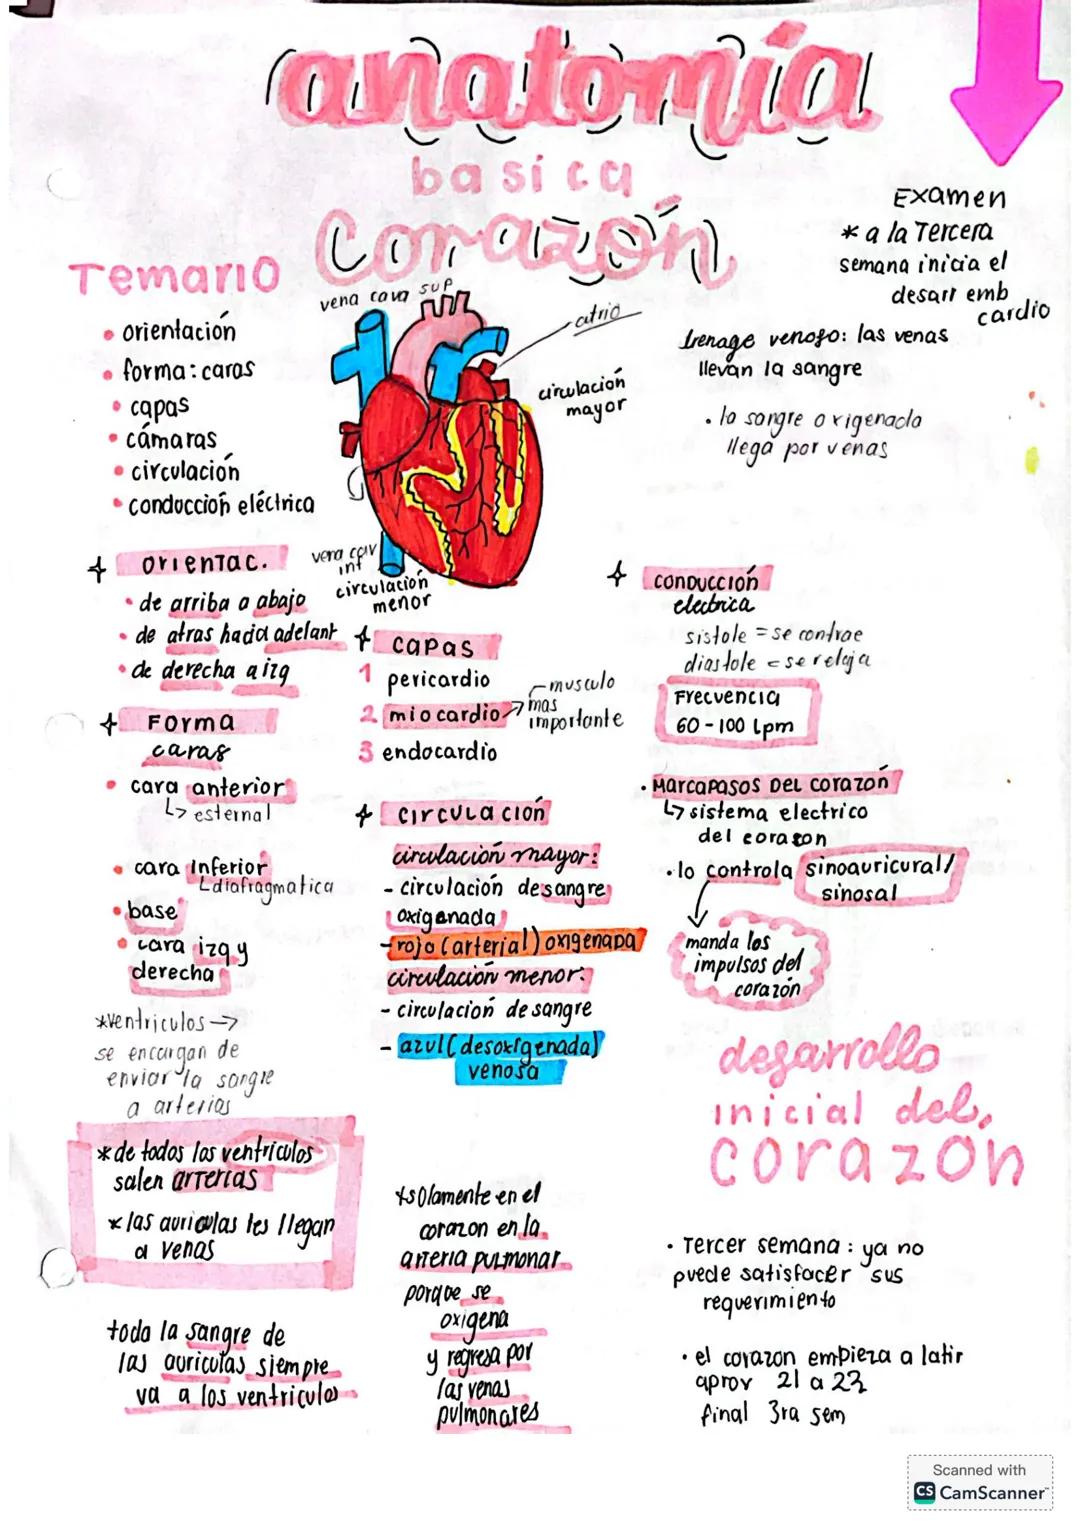 anatomía
basica
Corazón
Examen
* a la Tercera
semana inicia el
desarr emb
cardio
Temario
• orientación
• forma: caras
• capas
• cámaras
• circulación
• conducción eléctrica
vena cava sup
atrio
circulación
mayor
vena cav
inf
circulación
menor
venoso: las venas
llevan la sangre
• la sangre oxigenada
llega por venas
+ orientac.
• de arriba a abajo
• de atras hacia adelant
• de derecha a izq
+ Forma
caras
• cara anterior
↳ esternal
• cara Inferior
diafragmatica
• base
• cara izq y
derecha
*ventriculos →
se encargan de
enviar la sangre
a arterias
* de todos los ventriculos
salen arterias
* las auriculas les llegan
a venas
toda la sangre de
las auriculas siempre
va a los ventriculos
+ capas
1 pericardio
2 miocardio → musculo
mas
importante
3 endocardio
+ circulación
circulación mayor:
- circulación de sangre
oxigenada
- rojo (arterial) oxigenada
circulación menor:
- circulación de sangre
- azul (desoxigenada)
venosa
*solamente en el
corazon en la
arteria pulmonar
porque se
oxigena
y regresa por
las venas
pulmonares
+ conducción
electrica
sistole = se contrae
diastole = se relaja
Frecuencia
60-100 lpm
• Marcapasos del corazón
↳ sistema electrico
del corazon
• lo controla sinoauricural/
sinosal
manda los
impulsos del
corazón
desarrollo
inicial del
corazón
• Tercer semana: ya no
puede satisfacer sus
requerimiento
• el corazon empieza a latir
aprox 21 a 23
final 3ra sem
Scanned with
CS CamScanner